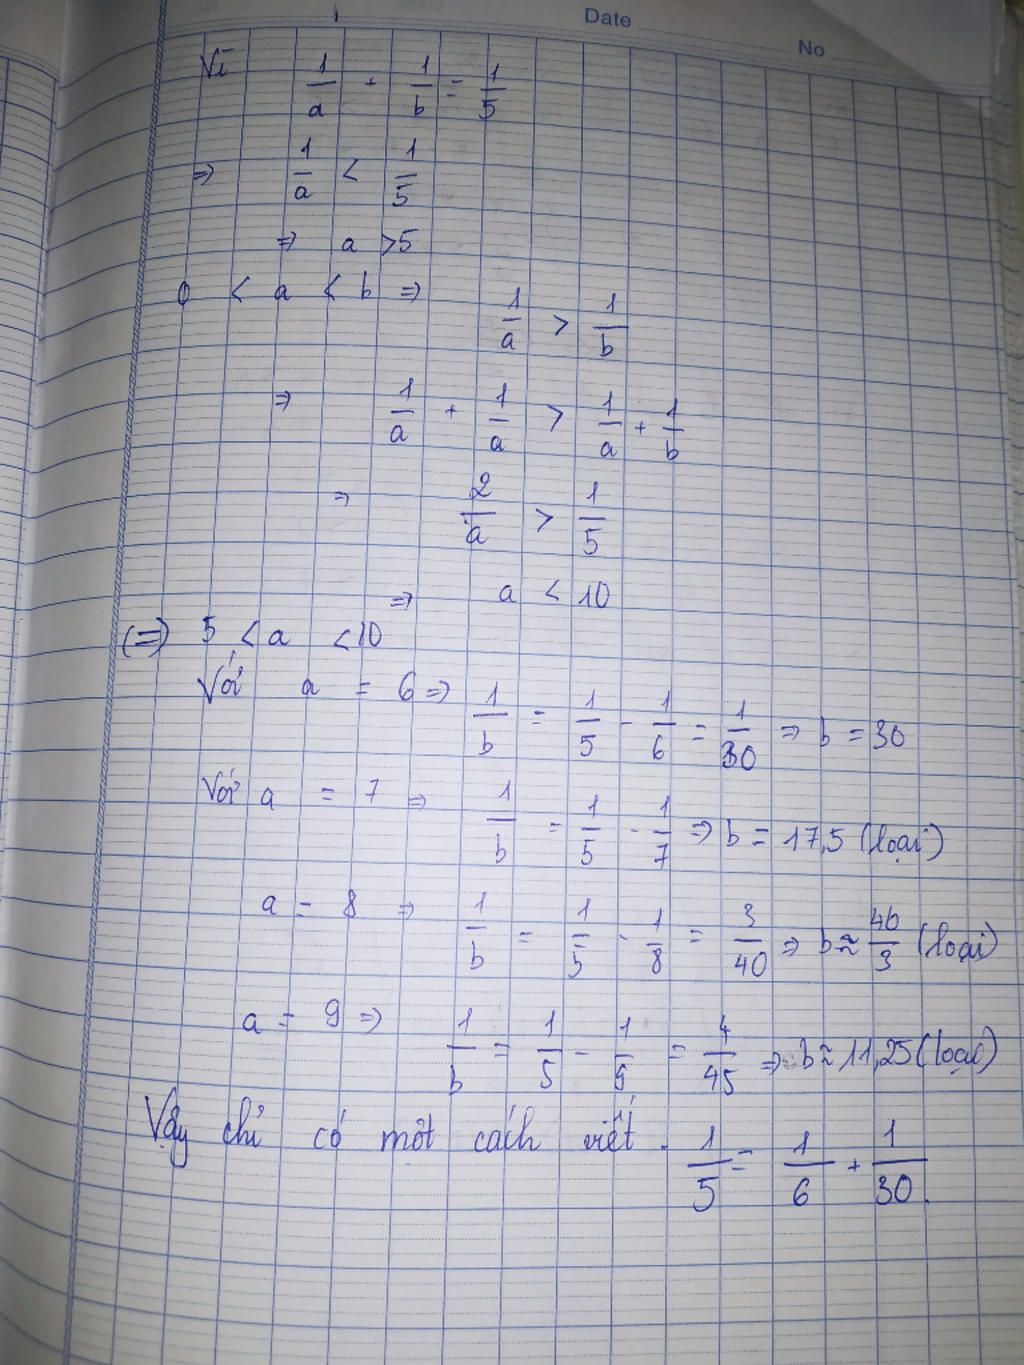 Date
No
Vì 1/a + 1/b = 1/5
=> 1/a < 1/5
=> a > 5
0 < a < b => 1/a > 1/b
=> 1/a + 1/a > 1/a + 1/b
=> 2/a > 1/5
=> a < 10
(=>) 5 < a < 10
Với a = 6 => 1/b = 1/5 - 1/6 = 1/30 => b = 30
Với a = 7 => 1/b = 1/5 - 1/7 => b = 17,5 (loại)
a = 8 => 1/b = 1/5 - 1/8 = 3/40 => b ≈ 40/3 (loại)
a = 9 => 1/b = 1/5 - 1/9 = 4/45 => b ≈ 11,25 (loại)
Vậy chỉ có một cách viết. 1/5 = 1/6 + 1/30.